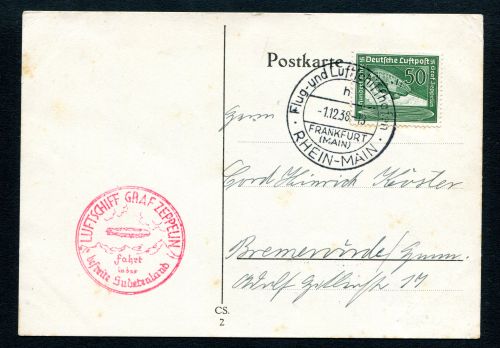 Postkarte
Deutsche Luftpost
50
Flug- und Luftschiffhafen
h
-1.12.38-
FRANKFURT
(MAIN)
RHEIN-MAIN
Herrn
Cord Hinrich Köster
Bremervörde/
Adolf
LUFTSCHIFF GRAF ZEPPELIN
Fahrt
in das
befreite Sudetenland
CS.
2